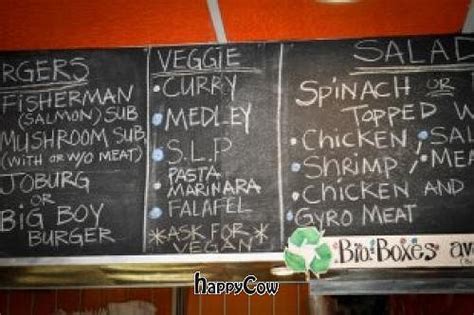 RGERS
FISHERMAN
(SALMON) SUB
MUSHROOM SUB
(WITH OR W/O MEAT)
JOBURG
OR
BIG BOY
BURGER
VEGGIE
CURRY
MEDLEY
S.L.P
PASTA
MARINARA
FALAFEL
*ASK FOR*
VEGAN
SALAD
SPINACH OR
TOPPED W
CHICKEN / SAL
SHRIMP / MEA
CHICKEN AND
GYRO MEAT
Bio-Boxes av
happyCow